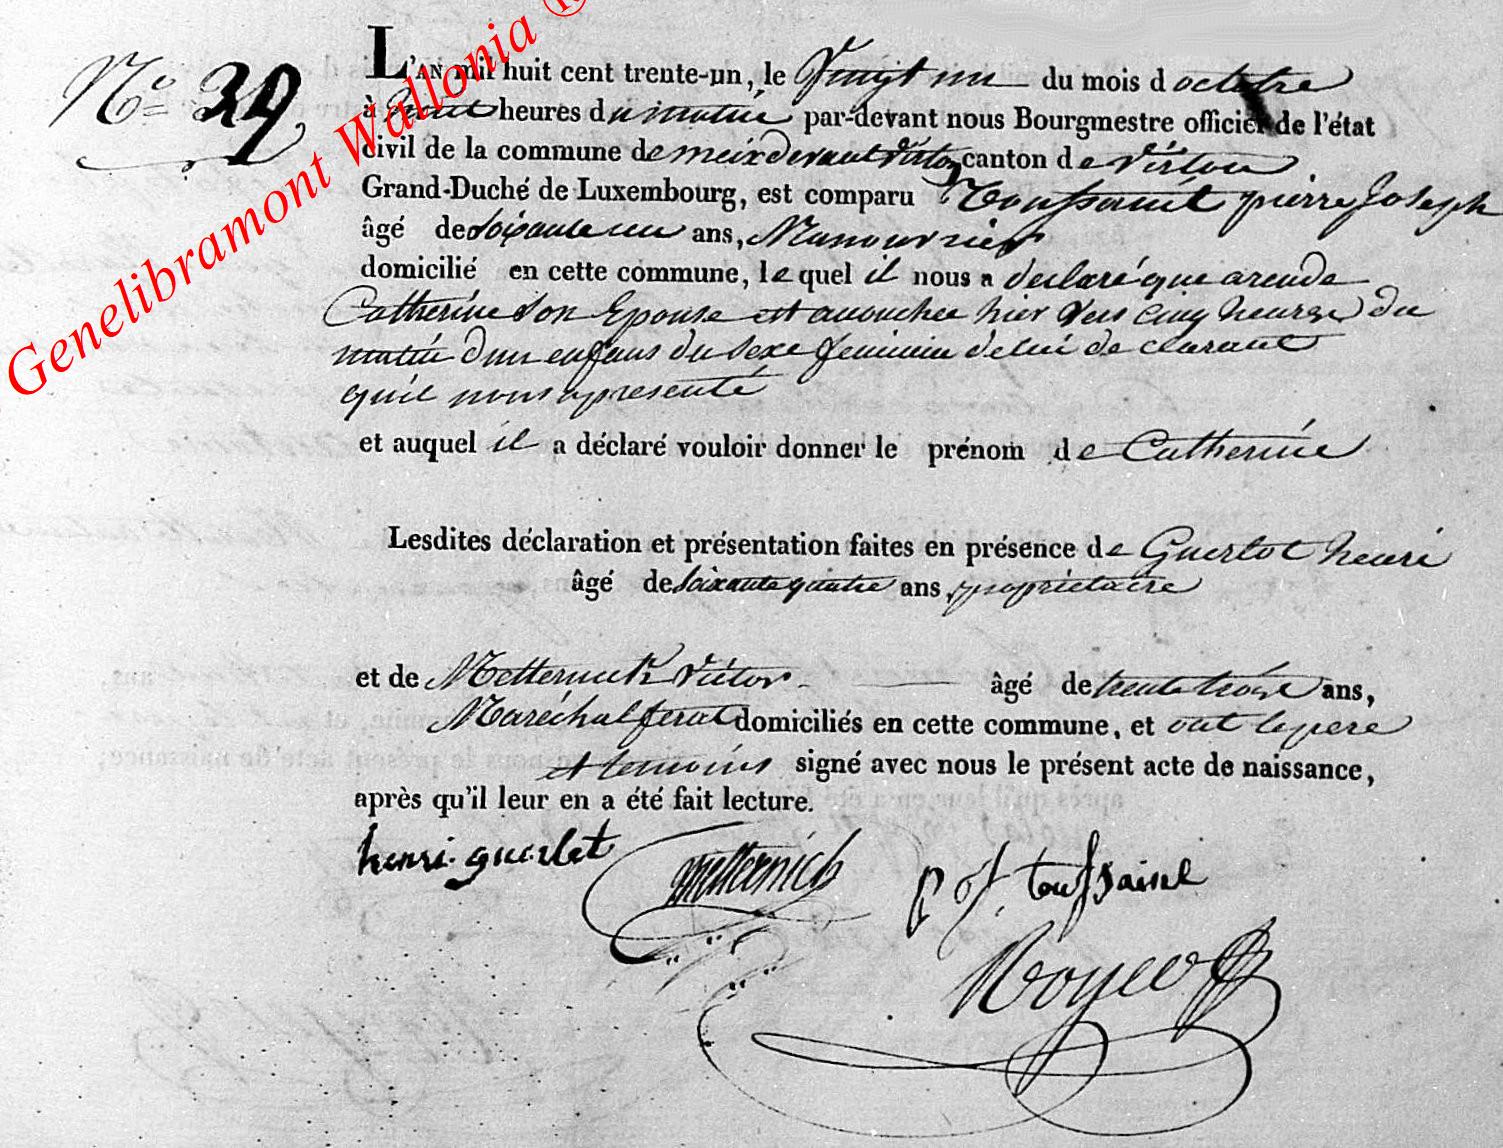 Genelibramont Wallonia ®
N° 39
L'AN mil huit cent trente-un, le Vingt un du mois d octobre
à huit heures du matin par-devant nous Bourgmestre officier de l'état
civil de la commune de meix devant Virton canton de Virton
Grand-Duché de Luxembourg, est comparu Toussaint pierre Joseph
âgé de soixante un ans, Manouvrier
domicilié en cette commune, lequel il nous a declaré que arende
Catherine son Epouse est accouchee hier Vers Cinq heures du
matin d'un enfans du sexe feminin de lui declarant
qu'il nous a presenté
et auquel il a déclaré vouloir donner le prénom de Catherine
Lesdites déclaration et présentation faites en présence de Guerlot henri
âgé de soixante quatre ans, propriétaire
et de Metternich Victor âgé de trente trois ans,
Maréchal ferant domiciliés en cette commune, et ont le pere
et temoins signé avec nous le présent acte de naissance,
après qu'il leur en a été fait lecture.
henri guerlet Metternich P J toussaint